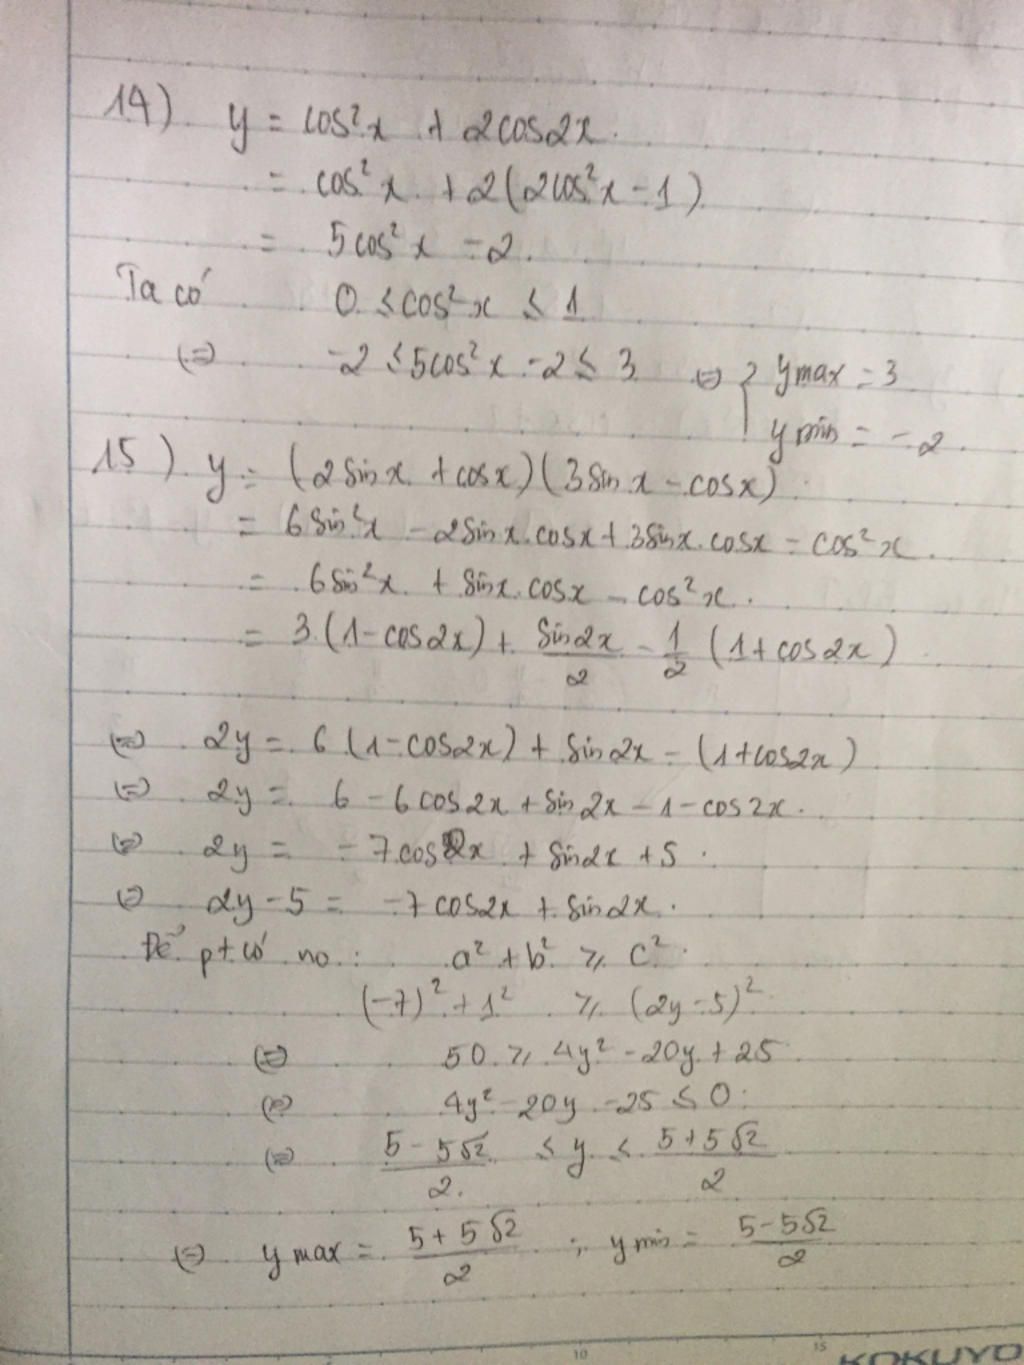 14) y = cos²x + 2cos2x.
= cos²x + 2(2cos²x - 1)
= 5cos²x - 2.
Ta có 0 ≤ cos²x ≤ 1
(=) -2 ≤ 5cos²x - 2 ≤ 3 (=) { y max = 3
y min = -2.
15) y = (2sinx + cosx)(3sinx - cosx)
= 6sin²x - 2sinx.cosx + 3sinx.cosx - cos²x.
= 6sin²x + sinx.cosx - cos²x.
= 3.(1 - cos2x) + sin2x/2 - 1/2 (1 + cos2x)
(=) 2y = 6(1 - cos2x) + sin2x - (1 + cos2x)
(=) 2y = 6 - 6cos2x + sin2x - 1 - cos2x.
(=) 2y = -7cos2x + sin2x + 5.
(=) 2y - 5 = -7cos2x + sin2x.
Để pt có no: a² + b² ≥ c².
(-7)² + 1² ≥ (2y - 5)²
(=) 50 ≥ 4y² - 20y + 25
(=) 4y² - 20y - 25 ≤ 0.
(=) (5 - 5√2)/2 ≤ y ≤ (5 + 5√2)/2
(=) y max = (5 + 5√2)/2 ; y min = (5 - 5√2)/2
10 15 KOKUYO